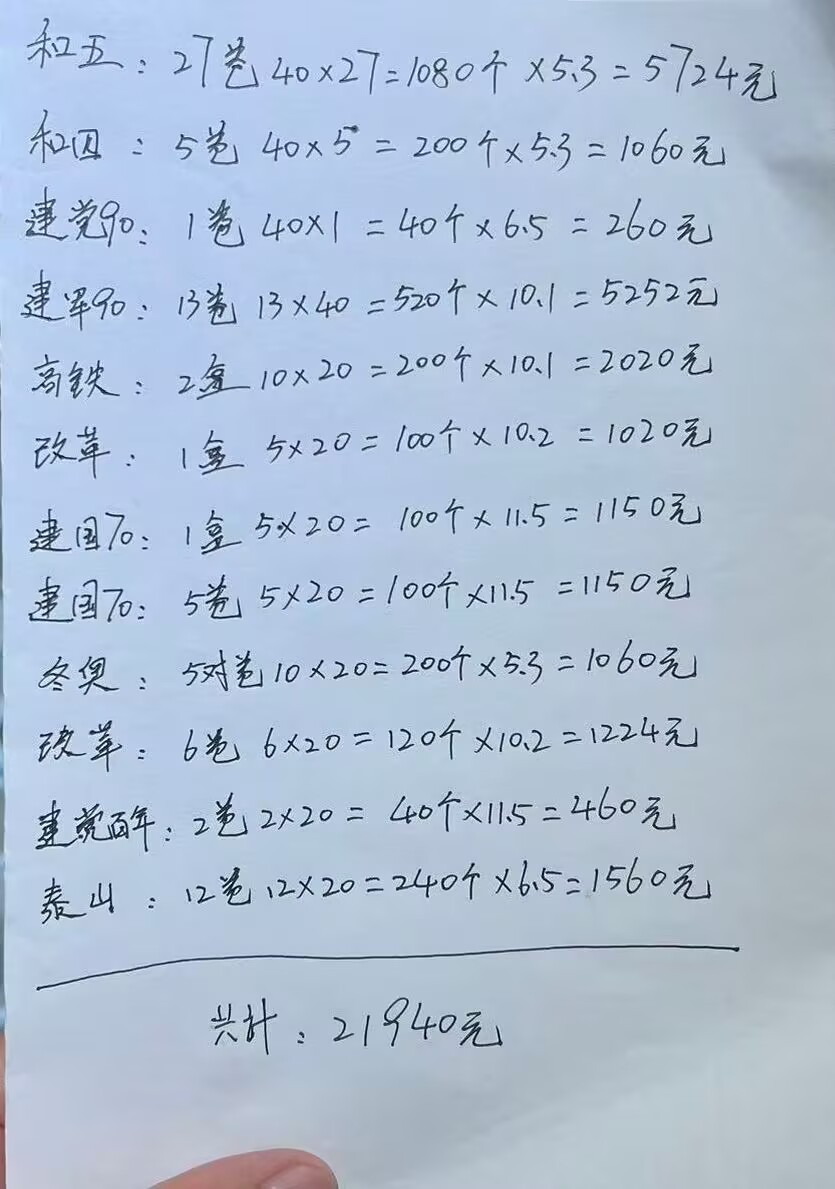 和五：27卷 40×27=1080个 ×5.3=5724元
和四：5卷 40×5=200个×5.3=1060元
建党90：1卷 40×1=40个×6.5=260元
建军90：13卷 13×40=520个×10.1=5252元
高铁：2盒 10×20=200个×10.1=2020元
改革：1盒 5×20=100个×10.2=1020元
建国70：1盒 5×20=100个×11.5=1150元
建国70：5卷 5×20=100个×11.5=1150元
冬奥：5对卷 10×20=200个×5.3=1060元
改革：6卷 6×20=120个×10.2=1224元
建党百年：2卷 2×20=40个×11.5=460元
泰山：12卷 12×20=240个×6.5=1560元
共计：21940元